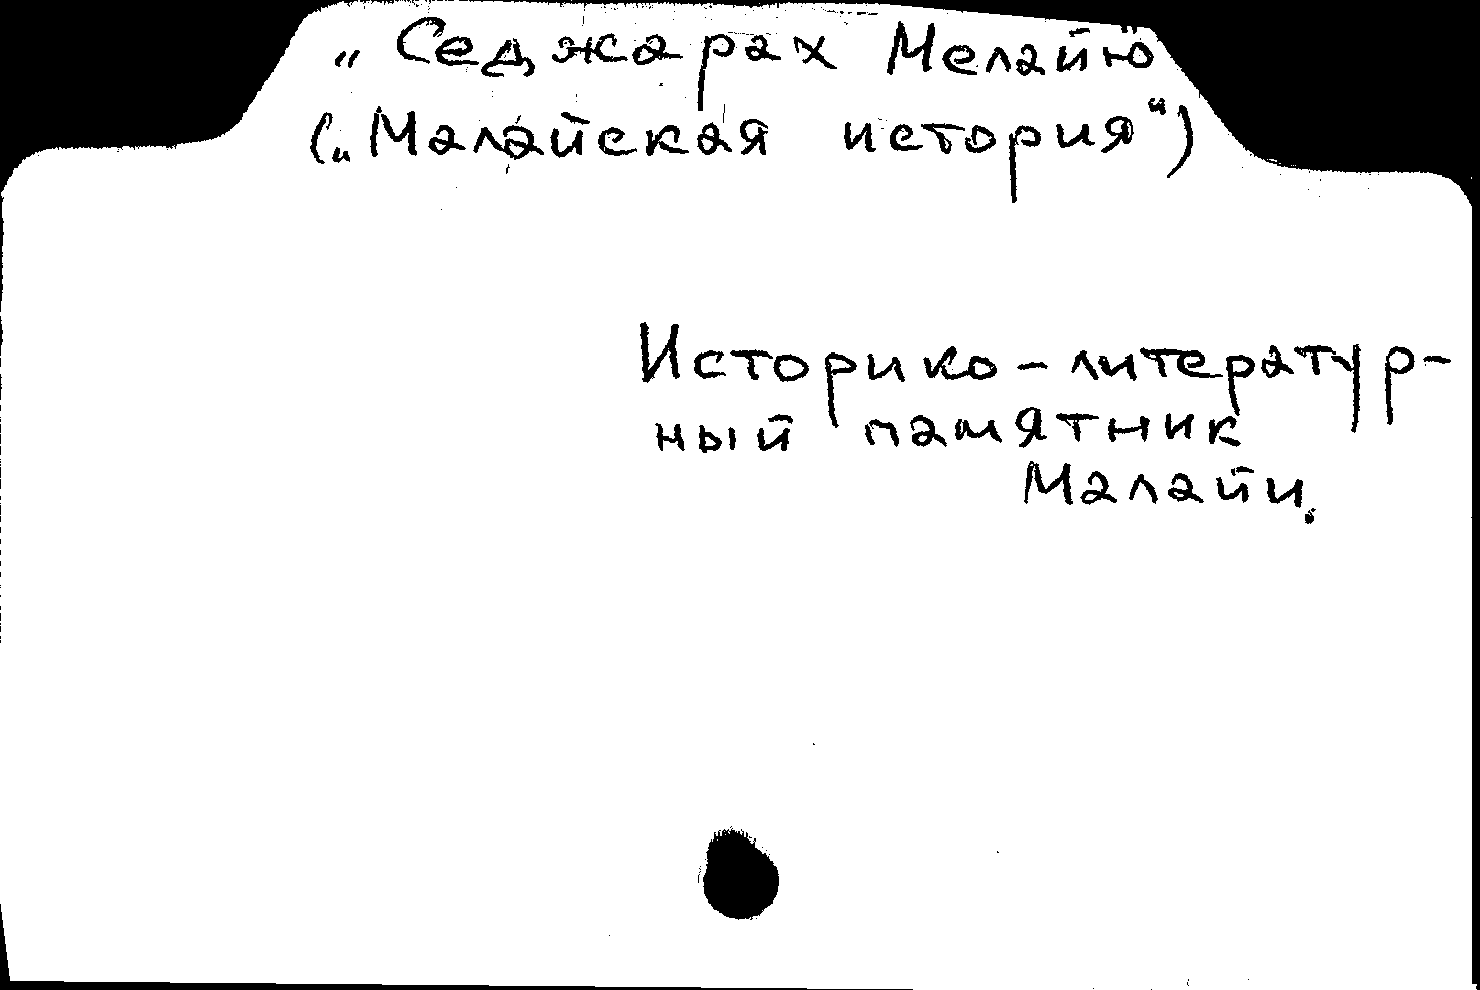 „Седжарах Мелайю"
(„Малайская история")
Историко-литератур-
ный памятник
Малайи.